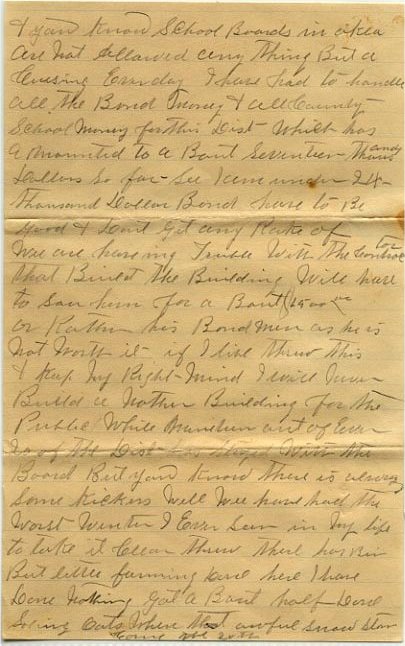 & you know School Boards in okla
Are Not Allowed any thing But a
Cussing Everyday I have had to handle
all the Bond Money & all County
School Money for this Dist Which has
amounted to a Bout Seventeen Thousandy
Dollars So far See I am under
thousand Dollar Bond have to Be
Good & Dont Get any Rake of
Wee are having Trouble With the Contractor
that Buildt the Building Will have
to Sau him for a Bout $1500 00
or Rather his Bond Men as he is
Not Worth it if I live threw this
& Keep My Right Mind I will Never
Build a Nother Building for the
Public While out of Ever
of the Dist has Stayed With the
Board But you Know there is always
Some Kickers Well Wee have had the
Worst Winter I Ever Saw in my life
to take it Clear threw there has Bin
But little farming Done here I have
Done Nothing Got a Bout half Done
Soing Oats When that awful snow Storm
Come the 20th